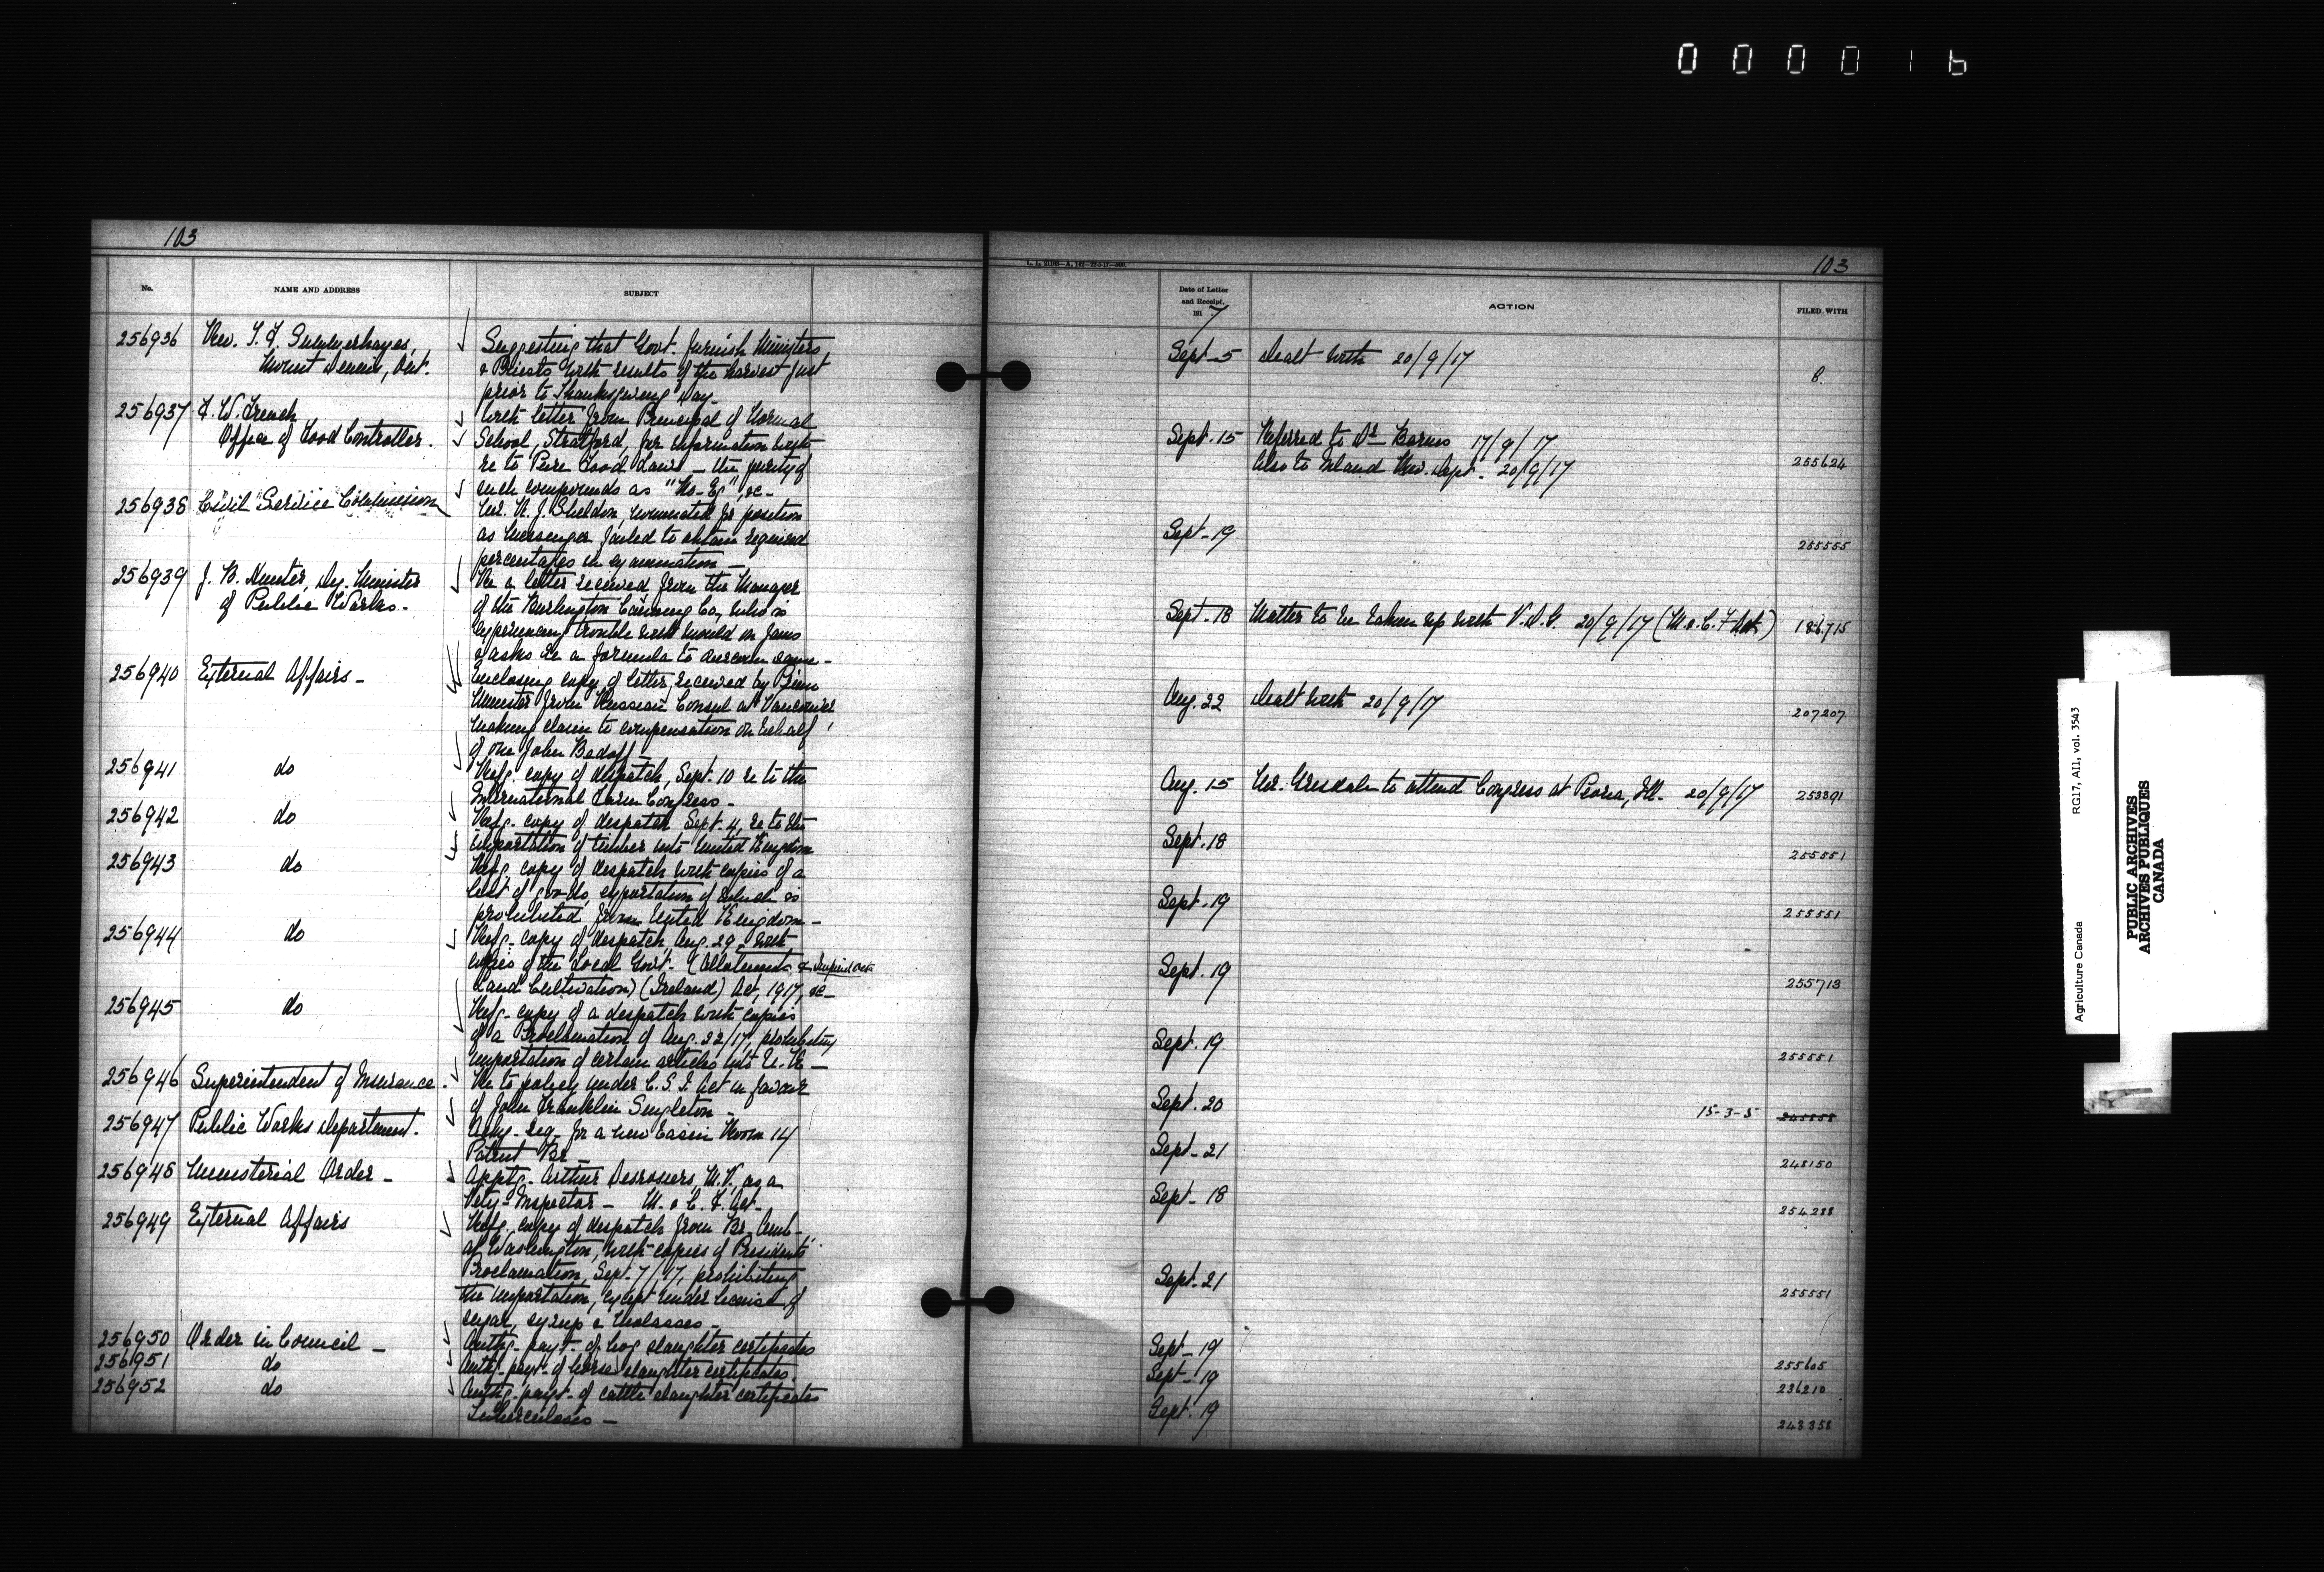 000016
103
103
L. L. 21183—A. 142—22-5-17—300.
No.
NAME AND ADDRESS
SUBJECT
Date of Letter
and Receipt.
191 7
ACTION
FILED WITH
256936
Rev. T. F. Summerhayes,
Mount Dennis, Ont.
Suggesting that Govt. furnish Ministers
& Priests with results of the harvest just
prior to Thanksgiving Day.
Sept. 5
Dealt with 20/9/17
8.
256937
F. W. French
Office of Food Controller.
With letter from Principal of Normal
School, Stratford, for information with
re to Pure Food Laws — the purity of
such compounds as "No-Eg", &c.
Sept. 15
Referred to Dr. Barnes 17/9/17
Also to Inland Rev. Dept. 20/9/17
255624
256938
Civil Service Commission
Mr. R. J. Sheldon, nominated for position
as Messenger failed to obtain required
percentages in examination —
Sept. 19
255555
256939
J. B. Hunter, Dy. Minister
of Public Works.
Re a letter received from the Manager
of the Burlington Canning Co, who is
experiencing trouble with mould on jams
& asks re a formula to overcome same —
Sept. 18
Matter to be taken up with V.D.G. 20/9/17 (M. & C. F. Act)
186715
256940
External Affairs —
Enclosing copy of letter, received by Prime
Minister from Russian Consul at Vancouver
making claim to compensation on behalf
of one John Badoff —
Aug. 22
Dealt with 20/9/17
207207
256941
do
Refg. copy of despatch, Sept. 10 re to the
International Farm Congress —
Aug. 15
Mr. Grisdale to attend Congress at Peoria, Ill. 20/9/17
253391
256942
do
Refg. copy of despatch Sept. 4, re to the
importation of timber into United Kingdom
Sept. 18
255551
256943
do
Refg. copy of despatch with copies of a
list of goods, exportation of which is
prohibited from United Kingdom —
Sept. 19
255551
256944
do
Refg. copy of despatch, Aug. 29 with
copies of the Local Govt. (Allotments &
Land Cultivation) (Ireland) Act, 1917, &c —
Sept. 19
255713
256945
do
Refg. copy of a despatch with copies
of a Proclamation of Aug. 22/17, prohibiting
importation of certain articles into U. K —
Sept. 19
255551
256946
Superintendent of Insurance.
Re to policy under C. S. I. Act in favour
of John Franklin Singleton —
Sept. 20
15-3-5
256947
Public Works Department.
Ackg. req. for a new basin Room 14
Patent Br.
Sept. 21
248150
256948
Ministerial Order —
Apptg. Arthur Desrosiers, M.V., as a
Vety. Inspector — M. & C. F. Act.
Sept. 18
254288
256949
External Affairs
Refg. copy of despatch from Br. Amb.
at Washington, with copies of President's
Proclamation, Sept. 7/17, prohibiting
the importation, except under license, of
sugar, syrup & molasses —
Sept. 21
255551
256950
Order in Council —
Authg. payt. of hog slaughter certificates
Sept. 19
255605
256951
do
Authg. payt. of horse slaughter certificates.
Sept. 19
236210
256952
do
Authg. payt. of cattle slaughter certificates
Tuberculosis —
Sept. 19
243358
Agriculture Canada
RG17, AI1, vol. 3543
PUBLIC ARCHIVES
ARCHIVES PUBLIQUES
CANADA